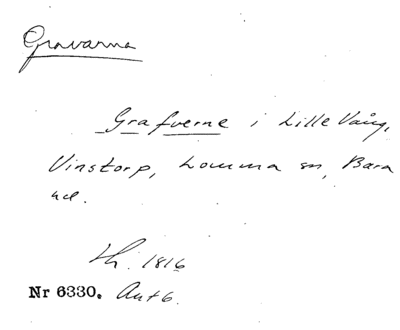 Gravarna
Grafverne i Lille Vång,
Vinstorp, Lomma sn, Bara
hd.
Lh. 1816
Nr 6330. Ant 6.